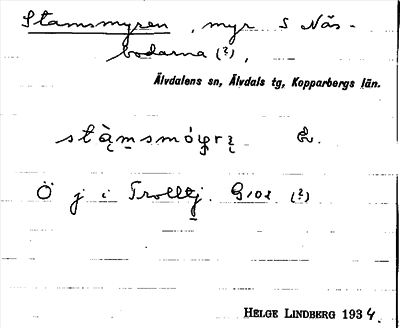 Stamsmyren, myr S Näs-
bodarna (?),
Älvdalens sn, Älvdals tg, Kopparbergs län.
Ö j i Trolltj. G102 (?)
HELGE LINDBERG 1934.